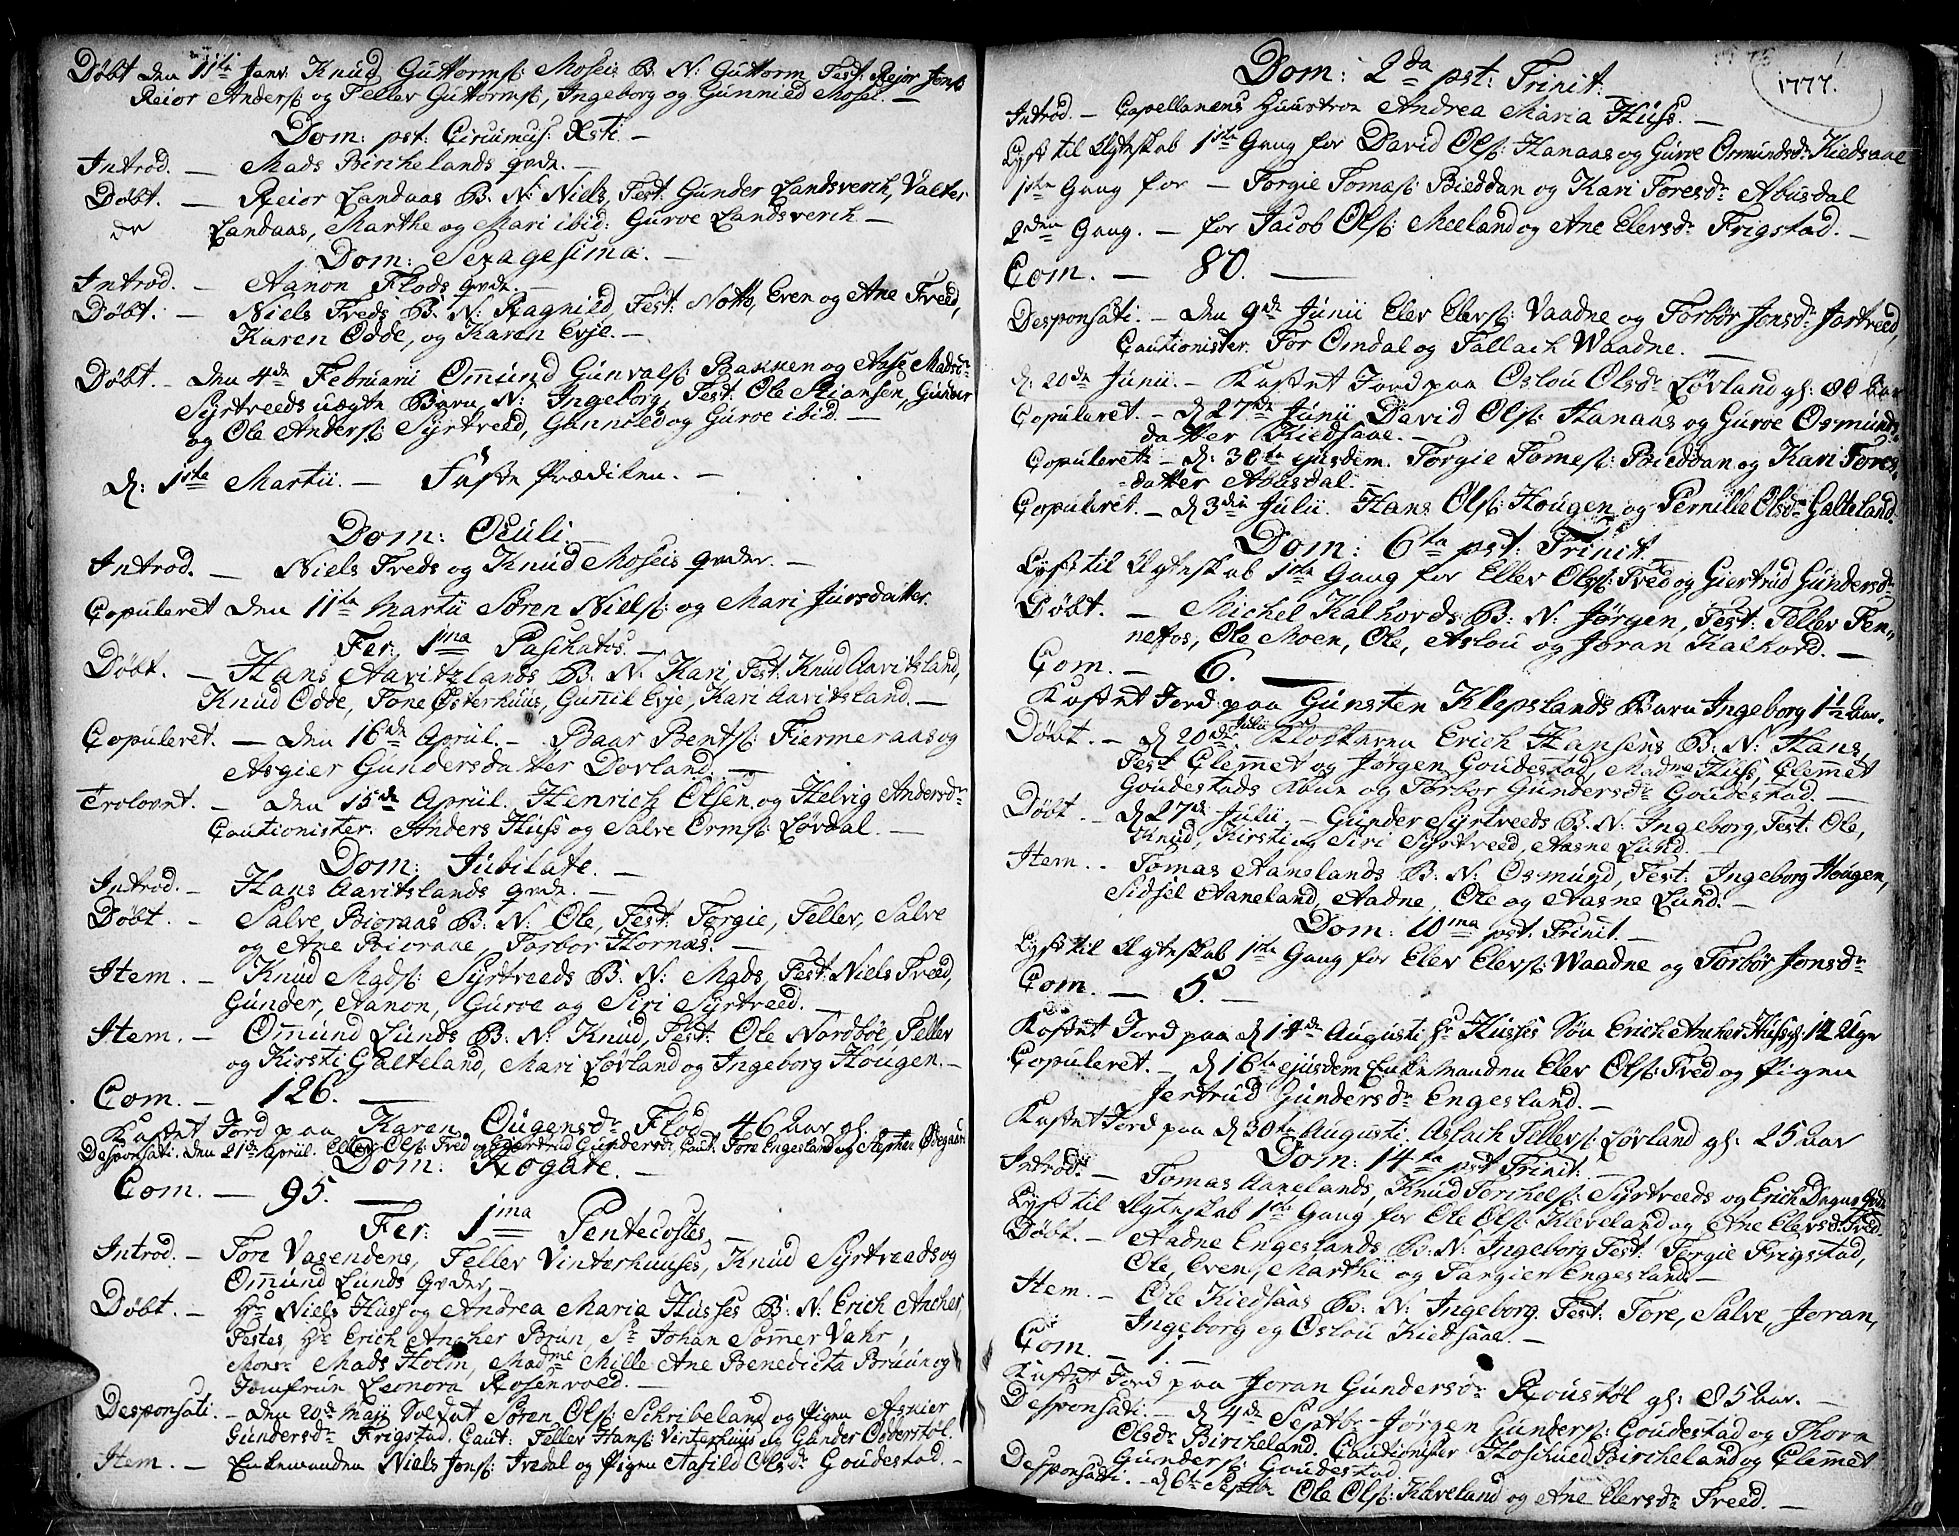 Döbt den 11te Janr. Knud Guttormsß: Moseis B: N: Guttorm Test: Reior Jonsß
Reior Andersß og Tellev Guttormsß, Ingeborg og Gunnild Mosei. —
Dom: pst: Circumcis: Xsti —
Introd. — Mads Birchelands qvde. —
Döbt. — Reior Landaas B. N: Niels, Test: Gunder Landsverch, Valter
Landaas, Marthe og Mari ibid: Guroe Landsverch —
Dom: Sexagesima. —
Introd. — Aanon Flods qvde. —
Döbt. — Niels Treds B. N: Ragnild, Test: Notto, Even og Ane Treed,
Karen Odde, og Karen Evje. —
Döbt. — den 4de Februarii Omund Gunvalsß: Bakken og Aase Madsdr
Syrtreeds uægte Barn N: Ingeborg, Test: Ole Stiansen, Gunder
og Ole Andersß: Syrtreed, Gunnild og Guroe ibid. —
d: 1ste Martii. — Faste Prædiken. —
Dom: Oculi. —
Introd. — Niels Treds og Knud Moseis qvder. —
Copuleret den 11te Martii Sören Nielsß: og Mari Jursdatter.
Fer: 1ma Paschatos. —
Döbt. — Hans Aavitslands B. N: Kari, Test: Knud Aavitsland,
Knud Odde, Tone Østerhuus, Gunil Evje, Kari Aavitsland. —
Copuleret. — den 16de April — Baar Bentsß: Fiermeraas og
Asgier Gundersdatter Dovland. —
Trolovet. — den 15de April. Henrich Olsen og Helvig Andersdr
Cautionister: Anders Huss og Salve Ormsß: Lövdal. —
Dom: Jubilate. —
Introd. — Hans Aavitslands qvde. —
Döbt — Salve Bioraas B. N: Ole, Test: Torgie, Tellev, Salve
og Ane Bioraae, Torbor Hornæs. —
Item. — Knud Madsß: Syrtreeds B. N: Mads, Test: Niels Treed,
Gunder, Aanon, Guroe og Siri Syrtreed. —
Item. — Omund Lunds B. N: Knud, Test: Ole Nordböe, Tellev
og Kirsti Galteland, Mari Lövland og Ingeborg Hougen. —
Com. — 126. —
Kastet Jord paa Karen Ougensdr Flod 46 Aar gl.
Desponsati. den 21de April. Ellev Olsß: Tred og Giertrud Gundersdr Caut: Tore Engesland og Stephen Ødegaard
Dom: Rogate. —
Com. — 95. —
Fer: 1ma Pentecostes. —
Introd. — Tore Vasendens, Tellev Vinterhuuses, Knud Syrtreeds og
Omund Lunds Qvder. —
Döbt. — Hr Niels Huss og Andrea Maria Husses B: N: Erich Ancher,
Testes, Hr Erich Ancher Brun, Sr Johan Sommer Vahr,
Monsr Mads Holm, Madme Mille Ane Benedicta Bruun og
Jomfrun Leonora Rosenvold. —
Desponsati. — den 20de Maji Soldat Sören Olsß: Schribeland og Pigen Asnier
Gundersdr Frigstad. Caut: Tellev Hansß: Vinterhuus og Gunder Odderstöl.
Item. — Enkemanden Niels Jonsß: Ivedal og Pigen Aasild Olsdr Goudestad. —
1777.
Dom: 2da pst: Trinit:
Introd. — Capellanens Huustroe Andrea Maria Huss. —
Lyst til Ægteskab 1ste Gang for David Olsß: Hanaas og Guroe Osmundsdr Kiedsaae
1ste Gang for — Torgie Tomesß: Bieddan og Kari Toresdr Abusdal
2den Gang. — for Jacob Olsß: Meeland og Ane Elevsdr Frigstad. —
Com. — 80. —
Desponsati. — den 9de Junii Elev Elevsß: Vaadne og Torbör Jonsdr Jortveed,
Cautionister Tor Omdal og Tallach Waadne. —
d: 20de Junii. — Kastet Jord paa Oslou Olsdr Lövland gl: 80 Aar
Copuleret. — d 27de Junii David Olsß: Hanaas og Guroe Osmunds-
datter Kiedsaae. —
Copuleret — d: 30te ejusdem. Torgie Tomesß: Bieddan og Kari Tores-
datter Abusdal. —
Copuleret. — d 3die Julii. Hans Olsß: Hougen og Pernille Olsdr Galteland.
Dom: 6ta pst: Trinit. —
Lyst til Ægteskab 1ste Gang for Ellev Olsß: Tred og Giertrud Gundersdr
Döbt. — Michel Kalhovds B: N: Jörgen, Test: Tellev Fen-
nefos, Ole Moen, Ole, Aslou og Joran Kalhovd. —
Com. — 6. —
Kastet Jord paa Gunsten Klepslands Barn Ingeborg 1½ Aar.
Döbt. — d 20de Julii Klokkeren Erich Hansens B: N: Hans,
Test Clemet og Jörgen Goudestad, Madme Huss, Clemet
Goudestads Kone og Torbor Gundersdr Goudestad. —
Döbt. — d 27de Julii. — Gunder Syrtreeds B. N: Ingeborg, Test: Ole,
Knud, Kirsti og Siri Syrtreed, Aasne Lund. —
Item. — Tomas Aanelands B: N: Osmund, Test: Ingeborg Hougen,
Sidsel Aaneland, Aadne, Ole og Aasne Lund. —
Dom: 10ma pst: Trinit. —
Lyst til Ægteskab 1ste Gang for Elev Elevsß: Waadne og Torbör Jonsdr
Com. — 5. —
Kastet Jord paa d 14de Augusti Hr Husses Sön Erich Ancher Huss gl: 12 Uger
Copuleret. — d 16te ejusdem Enkemanden Elev Olsß: Tred og Pigen
Jertrud Gundersdr Engesland. —
Kastet Jord paa d 30te Augusti. Aslach Tellevsß: Lövland gl: 25 Aar
Dom: 14ta pst Trinit: —
Introd. — Tomas Aanelands, Knud Terchelsß: Syrtreeds og Erich
Lyst til Ægteskab 1ste Gang for Ole Olsß: Kleveland og Ane Elevsdr Tred.
Döbt. — Aadne Engeslands B: N: Ingeborg Test: Torgie Frigstad,
Ole, Even, Marthe og Targier Engesland. —
Item. — Ole Kiedsaas B: N: Ingeborg. Test: Tore, Salve, Joran,
Ingeborg og Oslou Kiedsaae. —
Com. — 1. —
Kastet Jord paa Joran Gundersdr Roustöl gl: 85 Aar. —
Desponsati. — d 4de Septbr Jörgen Gundersß: Goudestad og Thora
Olsdr Bircheland. Cautionister Hoskued Bircheland og Clemet
Gundersß: Goudestad.
Desponsati. — d 6te Septbr Ole Olsß: Kleveland og Ane Elevsdr Treed. —